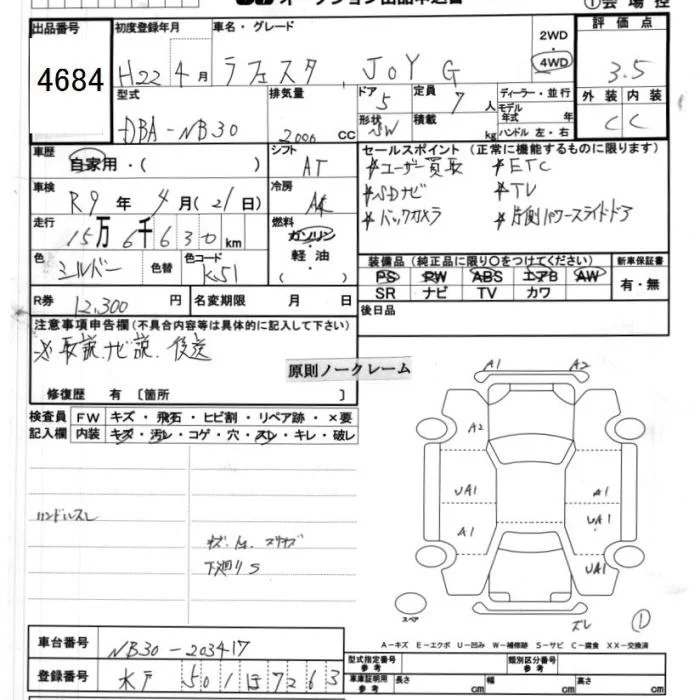 出品番号 初度登録年月 車名・グレード 2WD 評価点
4684 H22年4月 ラフェスタ JOY G 4WD 3.5
型式 排気量 ドア 5 定員 7人 ディーラー・並行 外装 内装
DBA-NB30 2000 cc 形状 SW 積載 kg モデル年式 年式 ハンドル 左・右 C C
車歴 自家用・( ) シフト AT セールスポイント (正常に機能するものに限ります)
車検 R9年4月(21日) 冷房 *ユーザー買取 *ETC
*SDナビ *TV
走行 15万6千630km 燃料 ガソリン *バックカメラ *片側パワースライドドア
軽油
( )
色 シルバー 色替 色コード K51 装備品 (純正品に限り○をつけてください) 新車保証書
PS PW ABS エアB AW 有・無
SR ナビ TV カワ
R券 12,300円 名変期限 月 日 後日品
注意事項申告欄(不具合内容等は具体的に記入して下さい)
※取説、ナビ説、後送
原則ノークレーム
修復歴 有 [箇所 ]
検査員 FW キズ・飛石・ヒビ割・リペア跡・×要
記入欄 内装 キズ・汚レ・コゲ・穴・スレ・キレ・破レ
A1 A2
A2
UA1 A1
A1 UA1
UA1
ハンドルスレ
下廻りS
スペア ズレ ①
A-キズ E-エクボ U-凹み W-補修跡 S-サビ C-腐食 XX-交換済
車台番号 NB30-203417
登録番号 水戸 501 ほ 7263
型式指定番号 参考 類別区分番号 参考
車庫証明用 参考 長さ cm 幅 cm 高さ cm